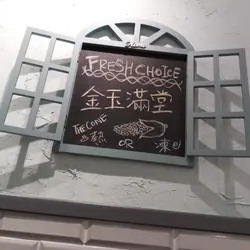 FRESH CHOICE
金玉滿堂
THE CONE
熱 OR 凍